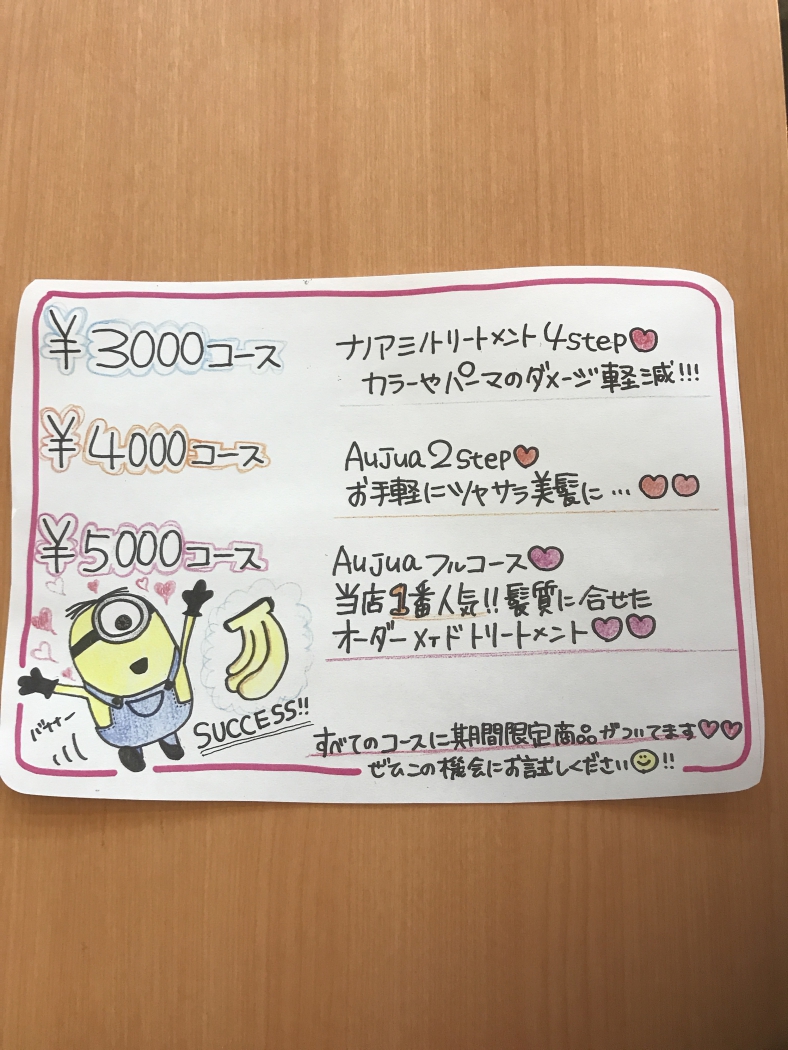 ¥3000コース
ナノアミノトリートメント4step
カラーやパーマのダメージ軽減!!!
¥4000コース
Aujua2step
お手軽にツヤサラ美髪に…
¥5000コース
Aujuaフルコース
当店1番人気!!髪質に合せた
オーダーメイドトリートメント
SUCCESS!!
すべてのコースに期間限定商品がついてます
ぜひこの機会にお試しください!!